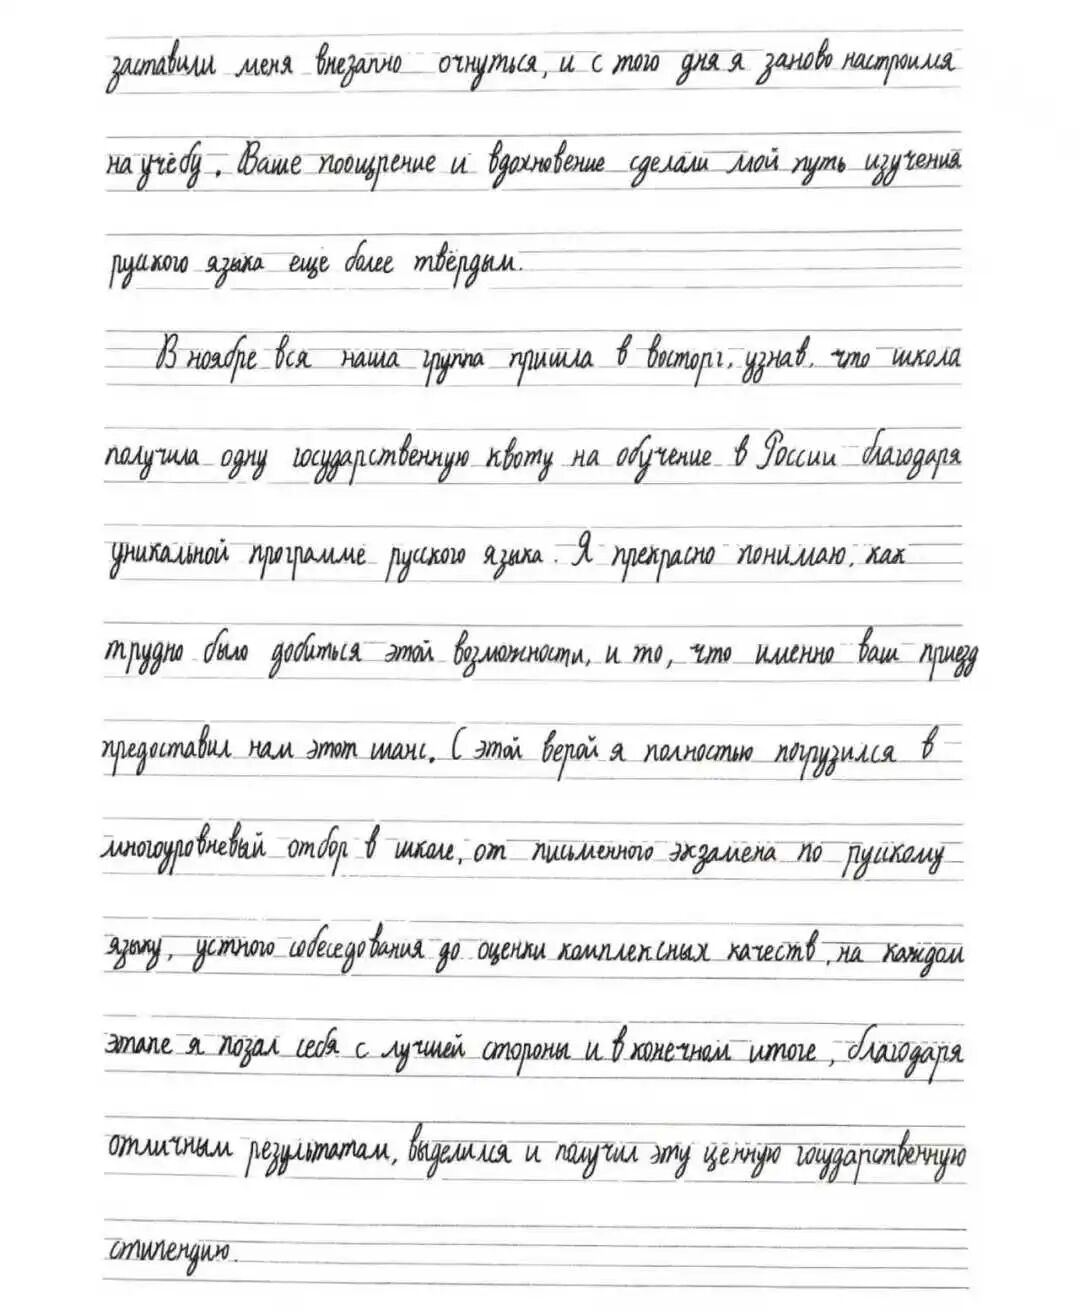 заставили меня внезапно очнуться, и с того дня я заново настроился
на учёбу. Ваше поощрение и вдохновение сделали мой путь изучения
русского языка ещё более твёрдым.
В ноябре вся наша группа пришла в восторг, узнав, что школа
получила одну государственную квоту на обучение в России благодаря
уникальной программе русского языка. Я прекрасно понимаю, как
трудно было добиться этой возможности, и то, что именно ваш приезд
предоставил нам этот шанс. С этой верой я полностью погрузился в
многоуровневый отбор в школе, от письменного экзамена по русскому
языку, устного собеседования до оценки комплексных качеств, на каждом
этапе я позал себя с лучшей стороны и в конечном итоге, благодаря
отличным результатам, выделился и получил эту ценную государственную
стипендию.